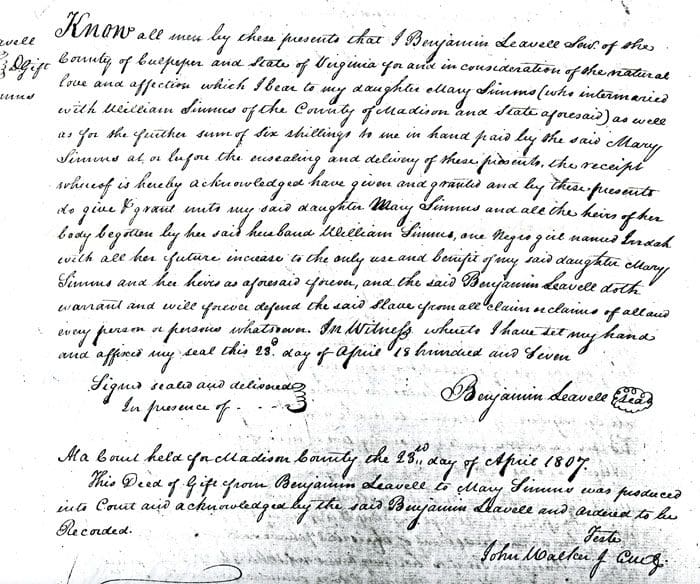 Leavell
Dd Gift
Simms
Know all men by these presents that I Benjamin Leavell Senr. of the
County of Culpeper and State of Virginia for and in consideration of the natural
love and affection which I bear to my daughter Mary Simms (who intermarried
with William Simms of the County of Madison and State aforesaid) as well
as for the further sum of Six shillings to me in hand paid by the said Mary
Simms at or before the ensealing and delivery of these presents, the receipt
whereof is hereby acknowledged have given and granted and by these presents
do give & grant unto my said daughter Mary Simms and all the heirs of her
body begotten by her said husband William Simms, one Negro girl named
with all her future increase to the only use and benefit of my said daughter Mary
Simms and her heirs as aforesaid forever, and the said Benjamin Leavell doth
warrant and will forever defend the said Slave from all claim or claims of all and
every person or persons whatsoever. In Witness whereto I have set my hand
and affixed my seal this 23d day of April 18 hundred and Seven
Signed sealed and delivered
In presence of - - - -
Benjamin Leavell Seal
At a Court held for Madison County the 23rd day of April 1807.
This Deed of Gift from Benjamin Leavell to Mary Simms was produced
into Court and acknowledged by the said Benjamin Leavell and ordered to be
Recorded.
Teste
John Walker J